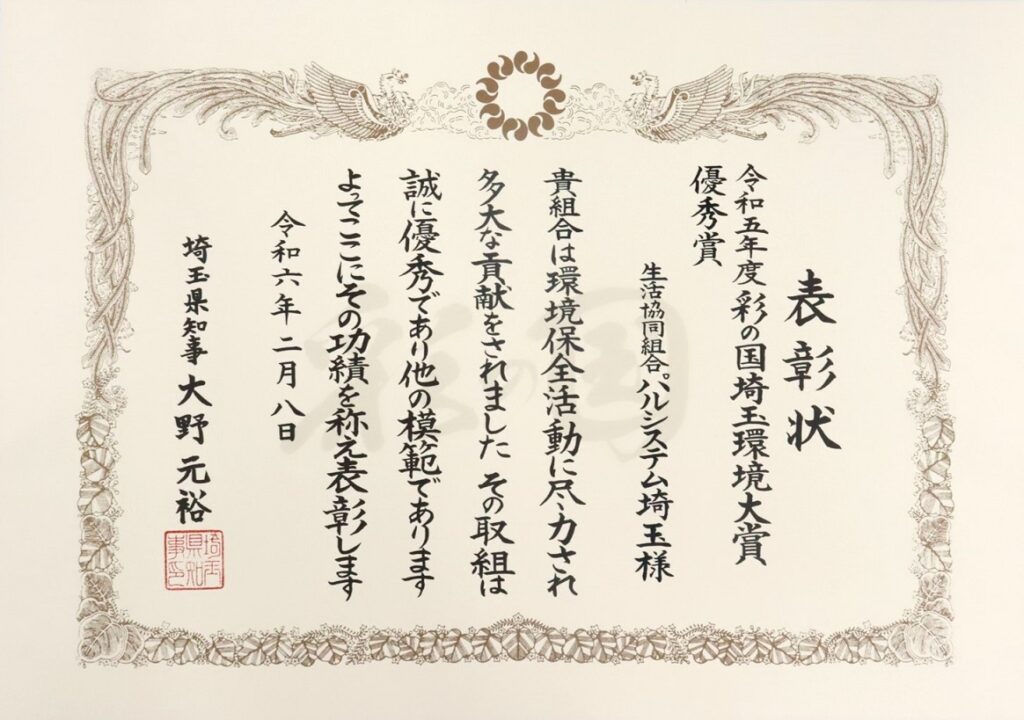 表彰状
令和五年度 彩の国埼玉環境大賞
優秀賞
生活協同組合パルシステム埼玉様
貴組合は環境保全活動に尽力され
多大な貢献をされました その取組は
誠に優秀であり他の模範であります
よってここにその功績を称え表彰します
令和六年二月八日
埼玉県知事 大野元裕
埼玉
県知
事印
彩の国